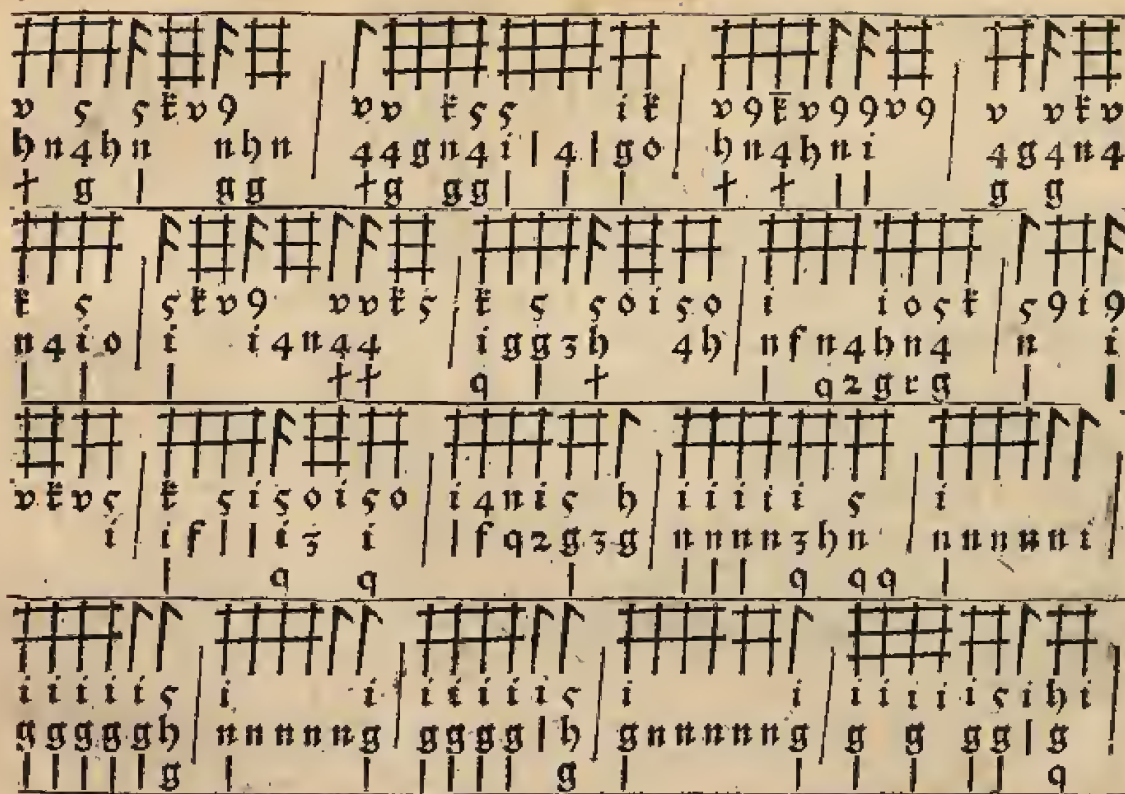 v 5 5 k v 9 | v v k 5 5 i k | v 9 k v 9 9 v 9 | v v k v
h n 4 h n n h n | 4 4 g n 4 i | 4 | g o | h n 4 h n i | 4 g 4 n 4
† g | g g | † g g g | | | | † † | | | g g
k 5 | 5 k v 9 v v k 5 | k 5 5 o i 5 o | i i o 5 k | 5 9 i 9
n 4 i o | i i 4 n 4 4 | i g g 3 h 4 h | n f n 4 h n 4 | n i
| | | | † † | q | † | | q 2 g r g | | |
v k v 5 | k 5 i 5 o i 5 o | i 4 n i 5 h | i i i i i 5 | i
i | i f | | i 3 i | | f q 2 g 3 g | n n n n 3 h n | n n n n n i |
| q q | | | | | q q q | |
i i i i i 5 | i i | i i i i i 5 | i i | i i i i i 5 i h i
g g g g g h | n n n n n g | g g g g | h | g n n n n n g | g g g g | g
| | | | | g | | | | | | g | | | | | | q